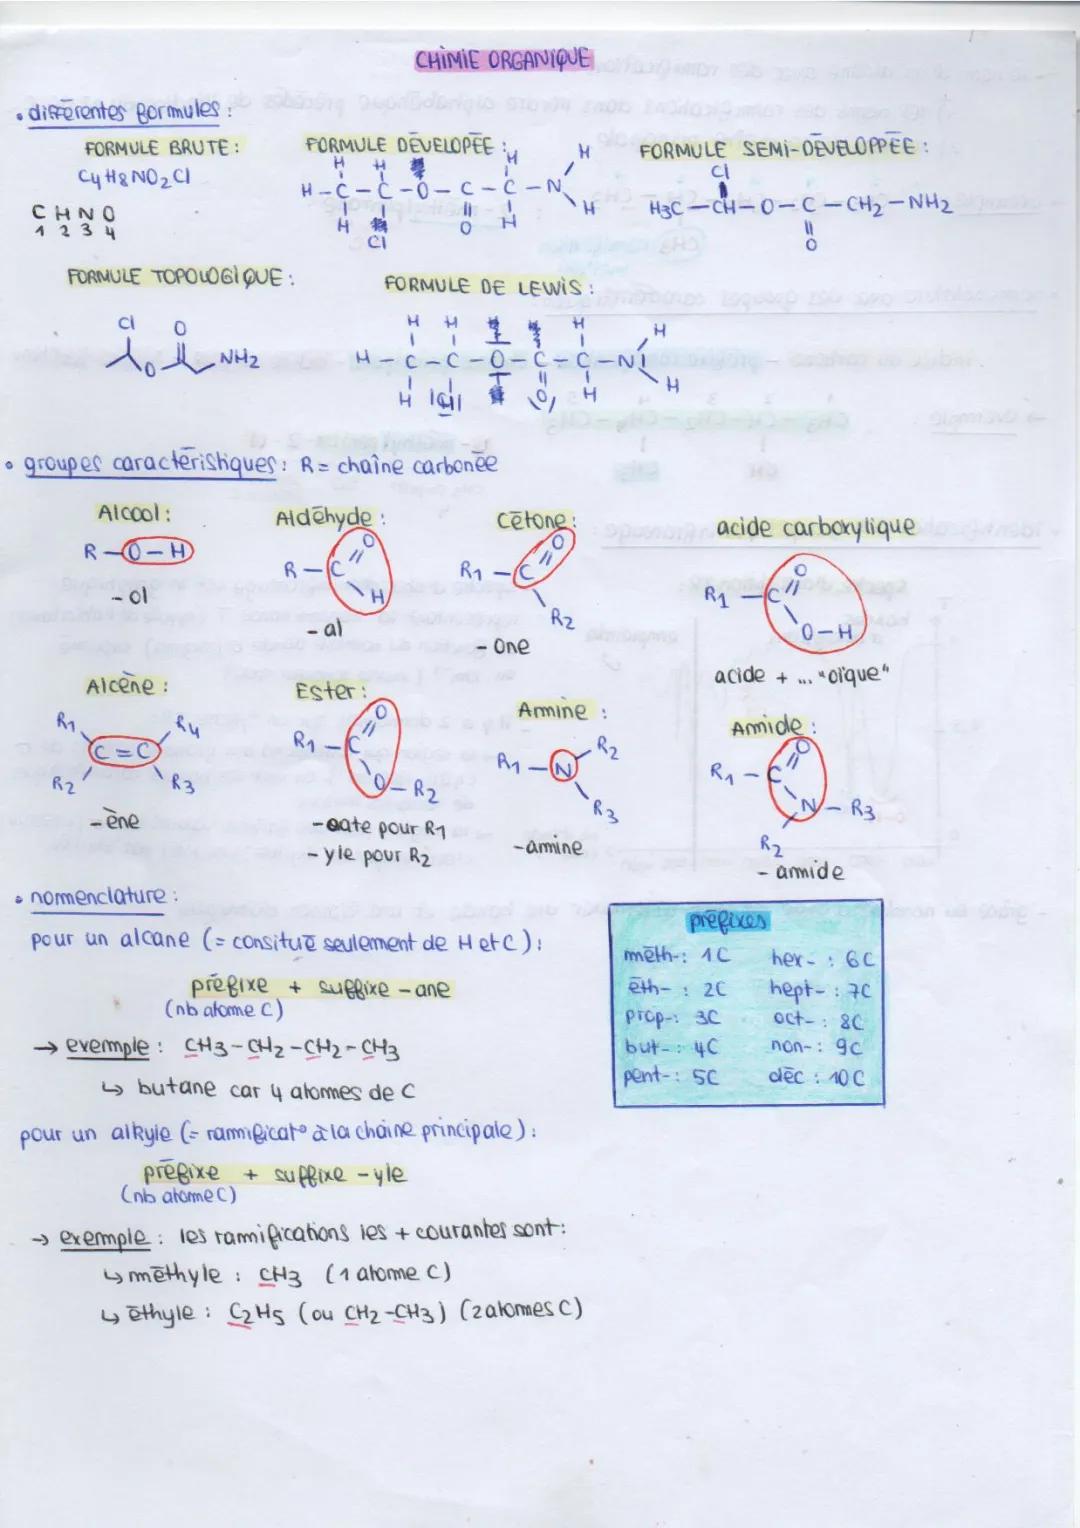 CHIMIE ORGANIQUE
• différentes formules :
FORMULE BRUTE :
C4H8NO2Cl
C H N O
1 2 3 4
FORMULE DÉVELOPÉE :
H H H H
H-C-C-O-C-C-N
H Cl O H H
FORMULE SEMI-DÉVELOPPÉE :
Cl
H3C-CH-O-C-CH2-NH2
O
FORMULE TOPOLOGIQUE :
Cl O
O NH2
FORMULE DE LEWIS :
H H H H
H-C-C-O-C-C-N
H Cl O H H
• groupes caractéristiques : R = chaîne carbonée
Alcool :
R-O-H
-ol
Aldéhyde :
O
R-C
H
-al
Cétone :
O
R1-C
R2
-one
acide carboxylique
O
R1-C
O-H
acide + ... "oïque"
Alcène :
R1 R4
C=C
R2 R3
-ène
Ester :
O
R1-C
O-R2
-oate pour R1
-yle pour R2
Amine :
R2
R1-N
R3
-amine
Amide :
O
R1-C
N-R3
R2
-amide
• nomenclature :
pour un alcane (= consitué seulement de H et C) :
préfixe + suffixe -ane
(nb atome C)
→ exemple : CH3-CH2-CH2-CH3
↳ butane car 4 atomes de C
préfixes
méth- : 1C hex- : 6C
éth- : 2C hept- : 7C
prop- : 3C oct- : 8C
but- : 4C non- : 9C
pent- : 5C déc : 10C
pour un alkyle (= rammificat° à la chaîne principale) :
préfixe + suffixe -yle
(nb atome C)
→ exemple : les ramifications les + courantes sont :
↳ méthyle : CH3 (1 atome C)
↳ éthyle : C2H5 (ou CH2-CH3) (2 atomes C)